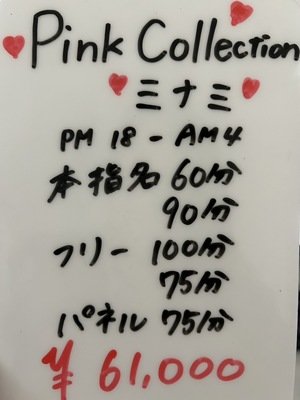 Pink Collection
ミナミ
PM 18 - AM4
本指名 60分
90分
フリー 100分
75分
パネル 75分
¥ 61,000